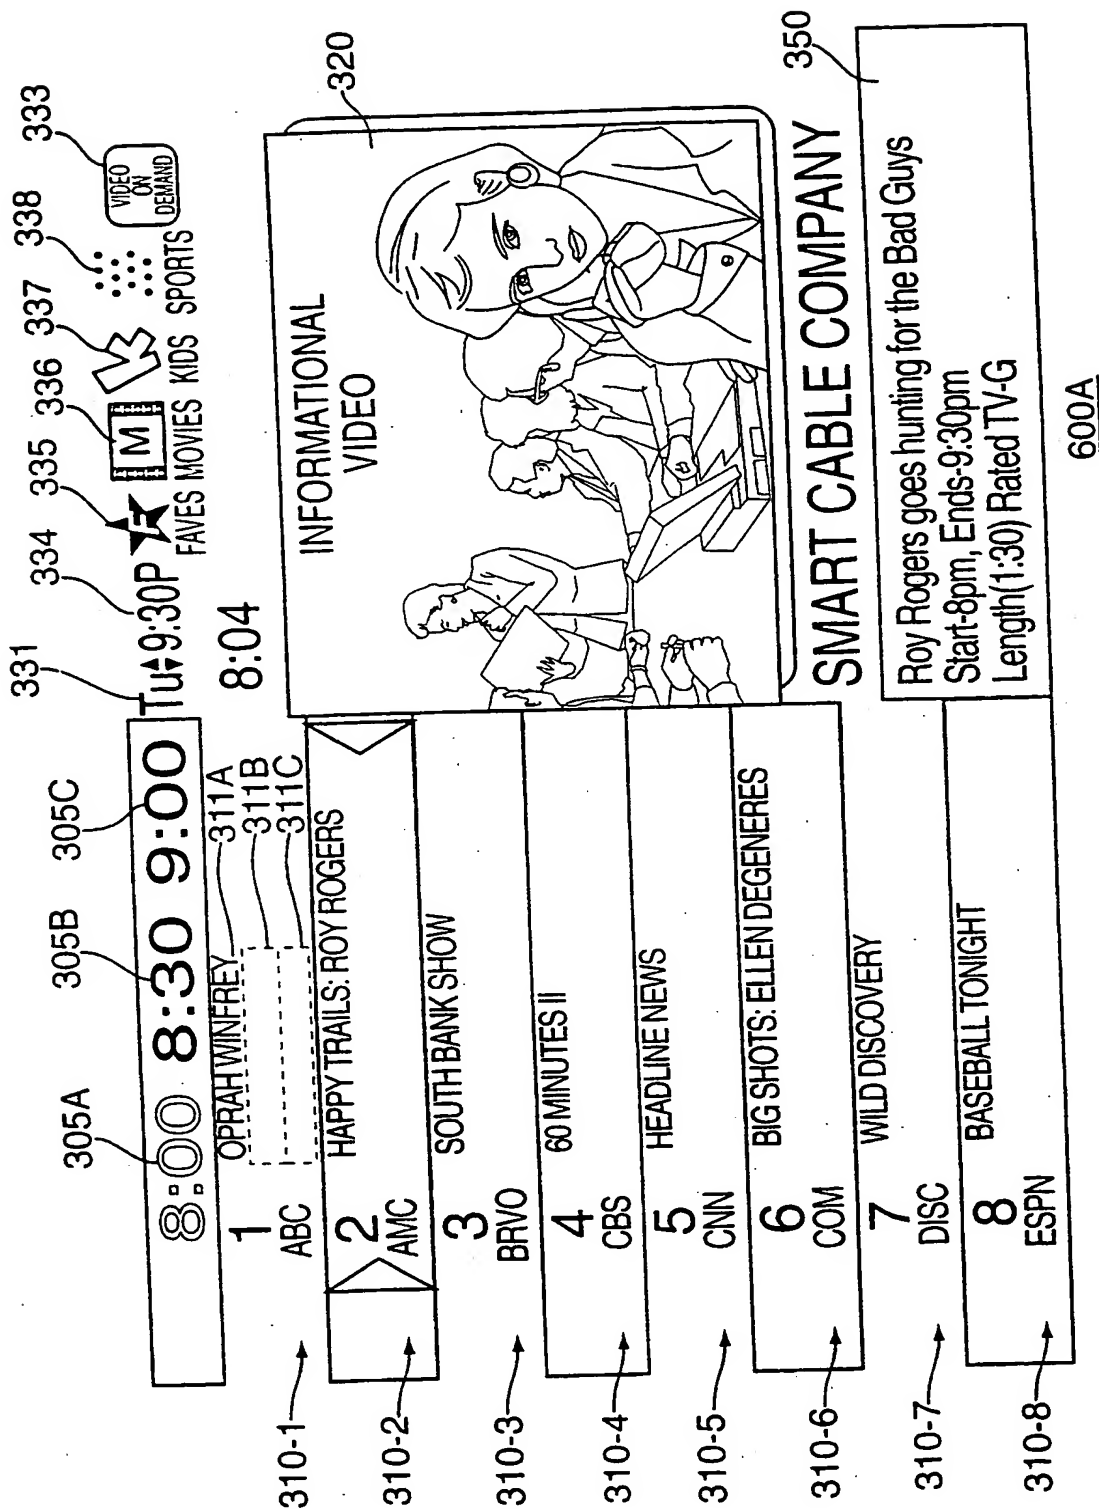 305A
305B
305C
331
334
335
336
337
338
333
8:00 8:30 9:00
Tu 9:30P
F
M
K
VIDEO
ON
DEMAND
FAVES MOVIES KIDS SPORTS
8:04
310-1
1
ABC
OPRAH WINFREY
311A
311B
311C
310-2
2
AMC
HAPPY TRAILS: ROY ROGERS
310-3
3
BRVO
SOUTH BANK SHOW
310-4
4
CBS
60 MINUTES II
310-5
5
CNN
HEADLINE NEWS
310-6
6
COM
BIG SHOTS: ELLEN DEGENERES
310-7
7
DISC
WILD DISCOVERY
310-8
8
ESPN
BASEBALL TONIGHT
INFORMATIONAL
VIDEO
320
SMART CABLE COMPANY
350
Roy Rogers goes hunting for the Bad Guys
Start-8pm, Ends-9:30pm
Length(1:30) Rated TV-G
600A